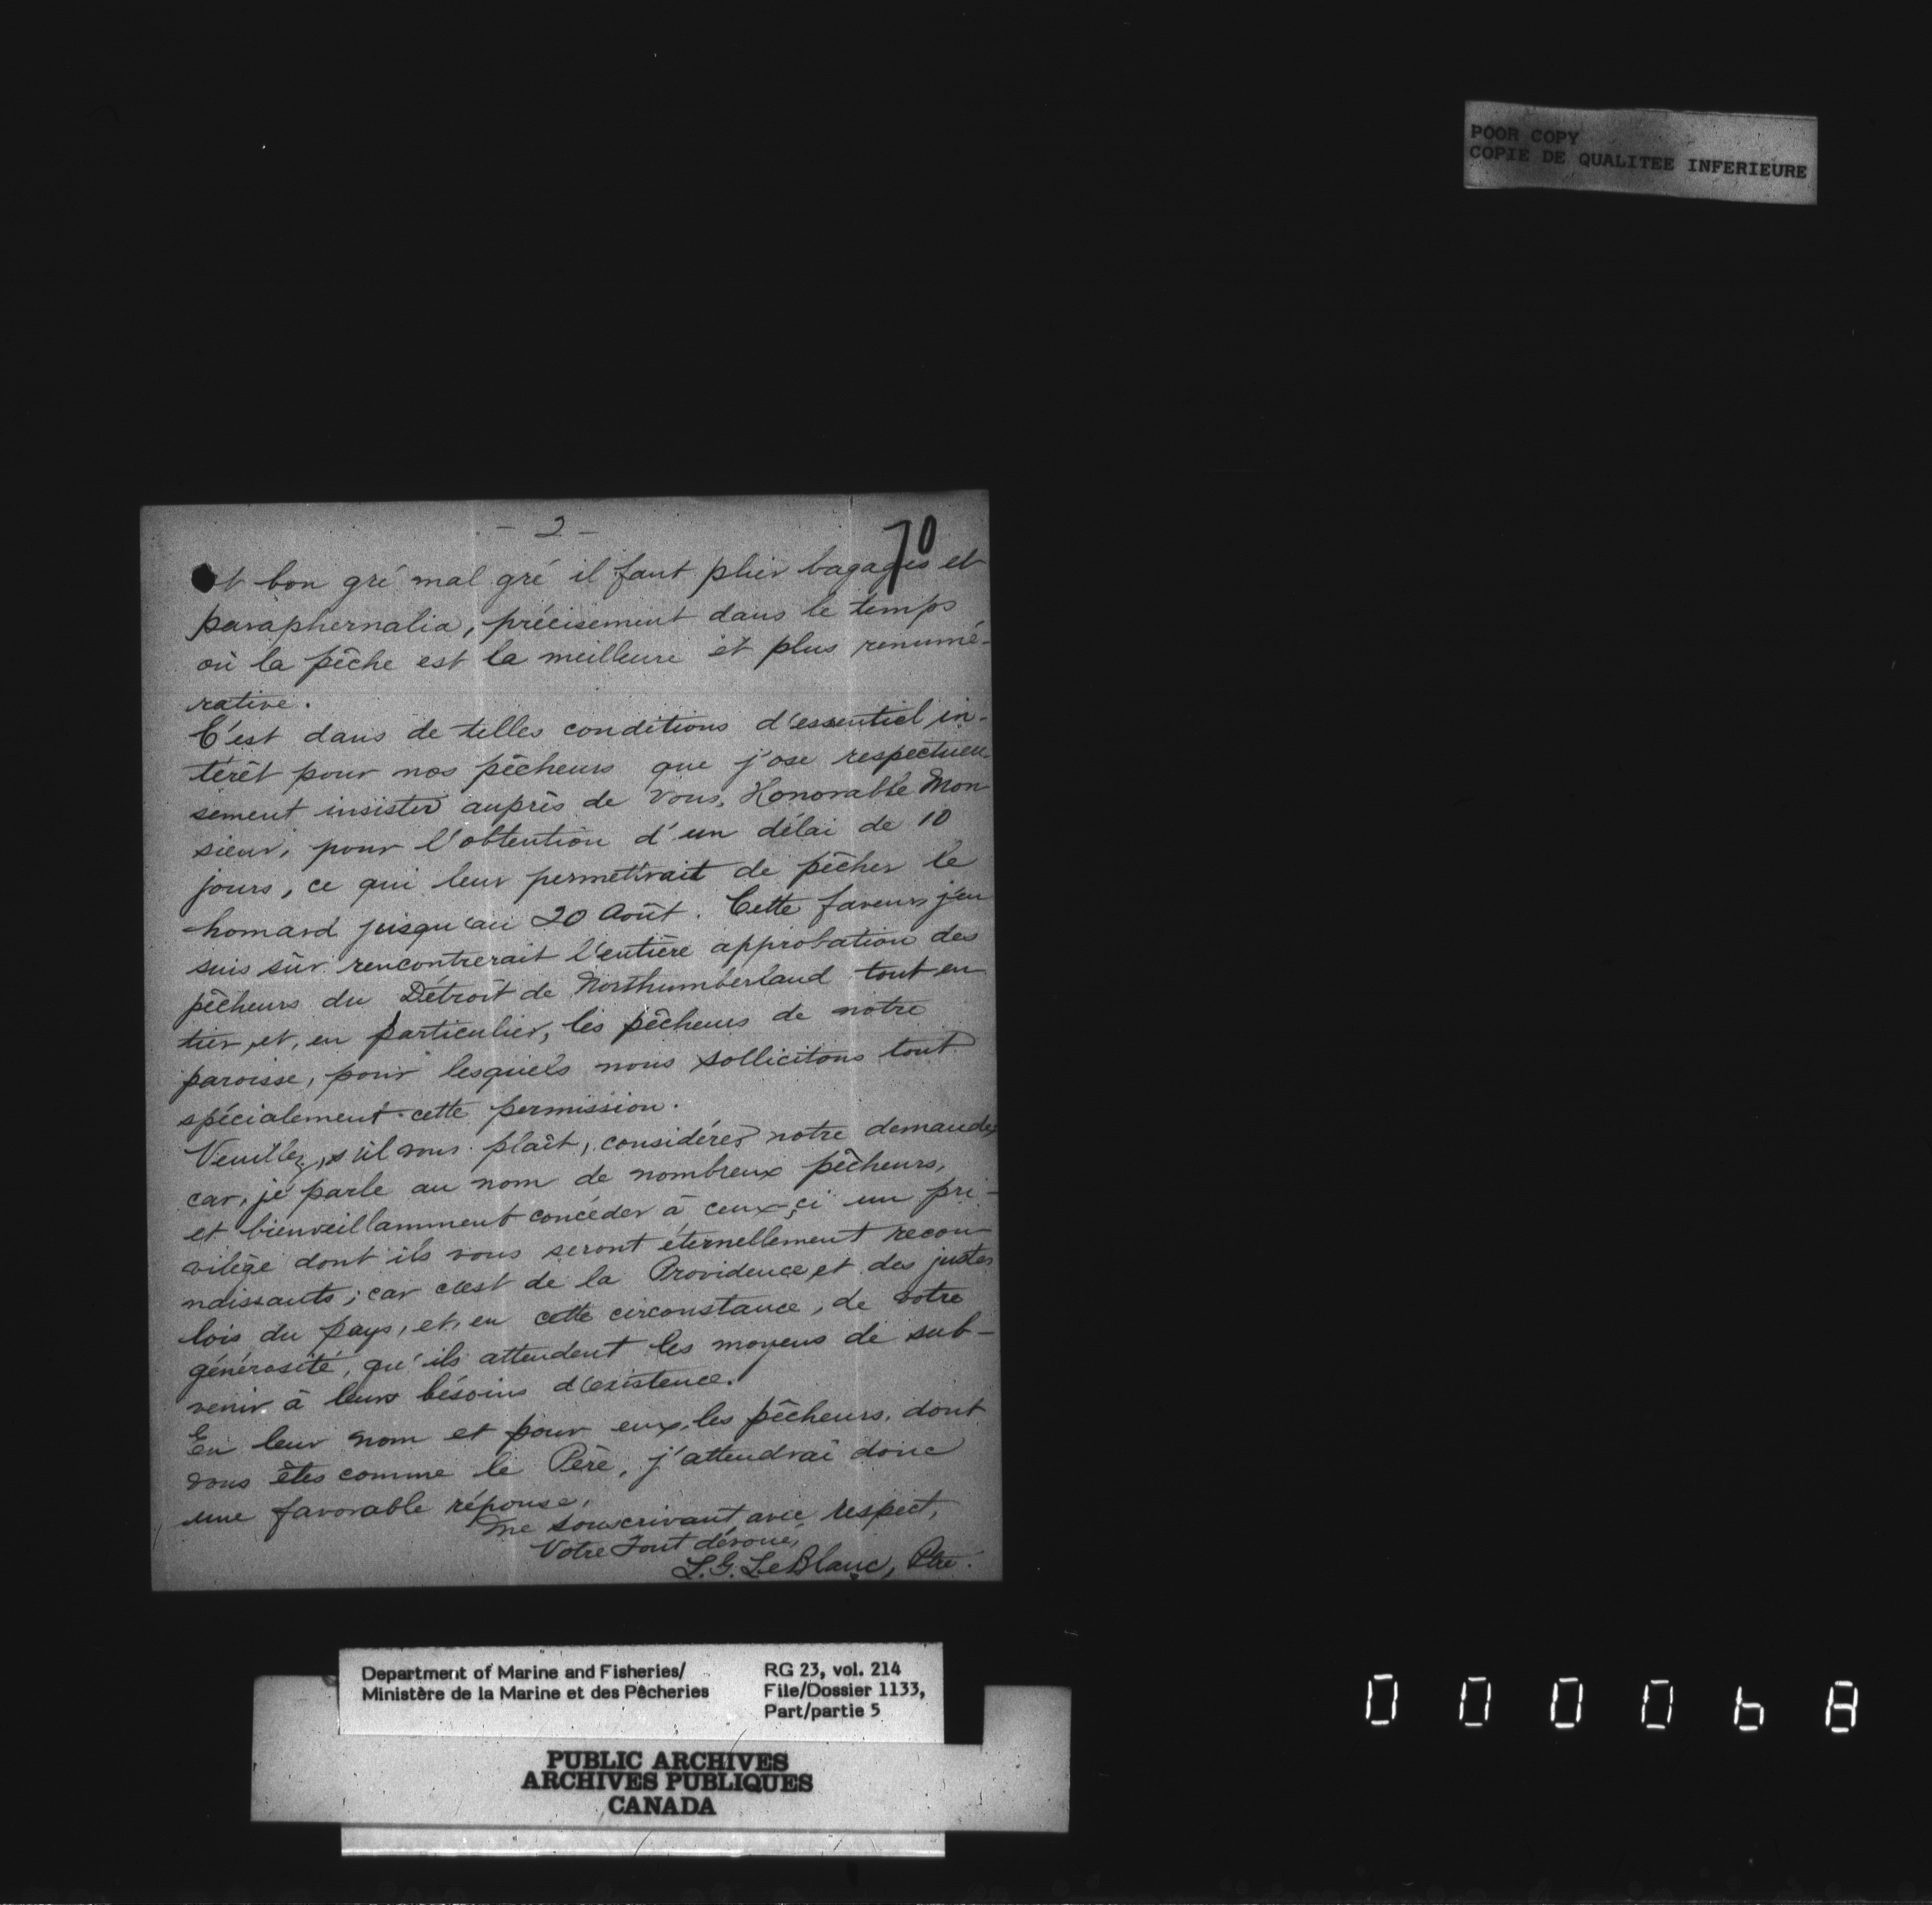 POOR COPY
COPIE DE QUALITEE INFERIEURE
- 2 -
70
et bon gré mal gré il faut plier bagages et
paraphernalia, précisement dans le temps
où la pêche est la meilleure et plus renumé-
rative.
C'est dans de telles conditions d'essentiel in-
térêt pour nos pêcheurs que j'ose respectueu-
sement insister auprès de vous, Honorable Mon
sieur, pour l'obtention d'un délai de 10
jours, ce qui leur permetrait de pêcher le
homard jusqu'au 20 Août. Cette faveur, j'en
suis sûr rencontrerait l'entière approbation des
pêcheurs du Détroit de Northumberland tout en
tier, et, en particulier, les pêcheurs de notre
paroisse, pour lesquels nous sollicitons tout
spécialement cette permission.
Veuillez, s'il vous plaît, considérer notre demande,
car, je parle au nom de nombreux pêcheurs,
et bienveillamment concéder à ceux-çi un pri-
vilège dont ils vous seront éternellement recon-
naissants; car c'est de la Providence et des justes
lois du pays, et, en cette circonstance, de votre
générosité, qu'ils attendent les moyens de sub-
venir à leurs bésoins d'existence.
En leur nom et pour eux, les pêcheurs, dont
vous êtes comme le Père, j'attendrai donc
une favorable réponse,
me souscrivant avec respect,
Votre Tout dévoué,
L. G. LeBlanc, Ptre.
Department of Marine and Fisheries/
Ministère de la Marine et des Pêcheries
RG 23, vol. 214
File/Dossier 1133,
Part/partie 5
PUBLIC ARCHIVES
ARCHIVES PUBLIQUES
CANADA